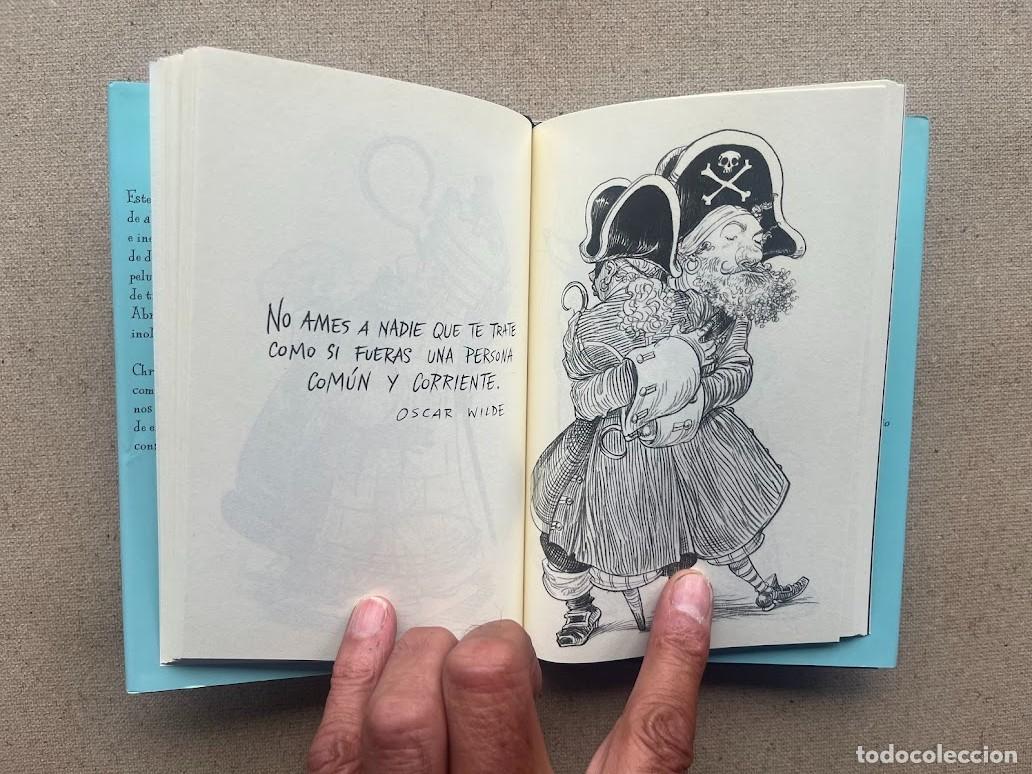 Este
de a
e ine
de d
pelu
de t
Abr
inol
Chr
com
nos
de e
cont
NO AMES A NADIE QUE TE TRATE
COMO SI FUERAS UNA PERSONA
COMÚN Y CORRIENTE.
OSCAR WILDE
todocoleccion